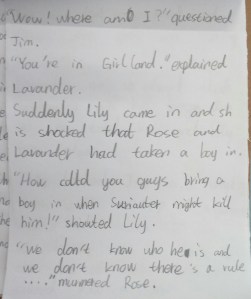 "Wow! where am I?" questioned
Jim.
"You're in Girl land." explained
Lavander.
Suddenly Lily came in and sh
is shocked that Rose and
Lavander had taken a boy in.
"How could you guys bring a
boy in when might kill
him!" shouted Lily.
"we don't know who he is and
we don't know there is a rule
...." murmered Rose.